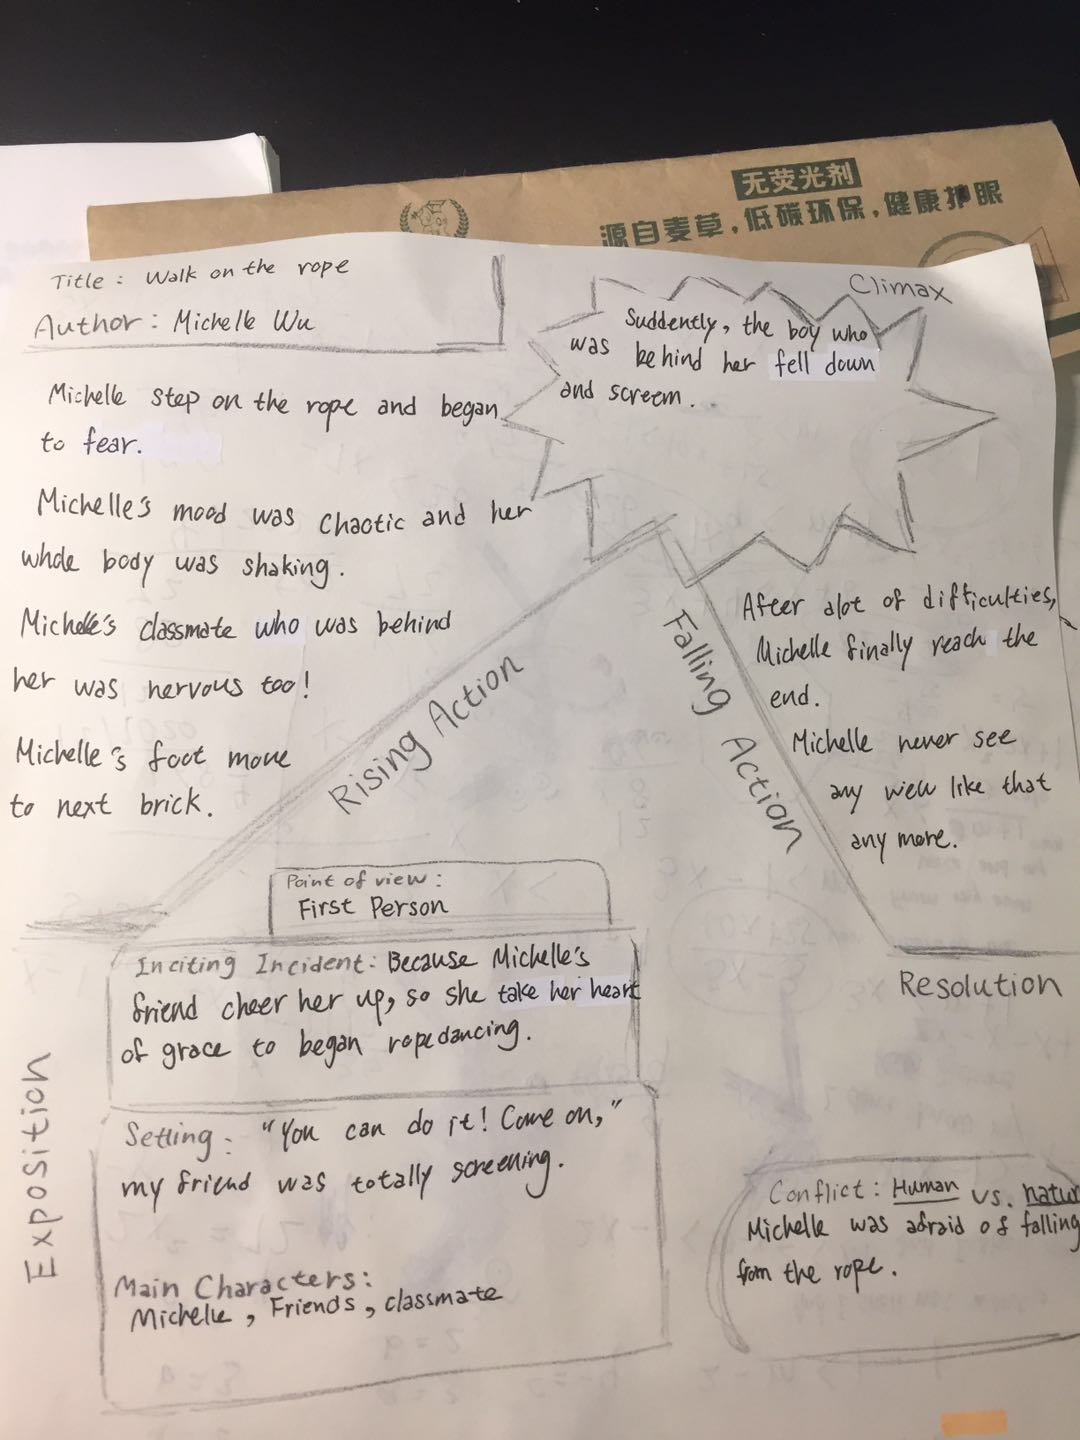 无荧光剂
源自麦草，低碳环保，健康护眼
Title: Walk on the rope
Author: Michelle Wu
Michelle step on the rope and began
to fear.
Michelle's mood was chaotic and her
whole body was shaking.
Michelle's classmate who was behind
her was nervous too!
Michelle's foot move
to next brick.
Rising Action
Climax
Suddenly, the boy who
was behind her fell down
and screem...
Falling Action
After alot of difficulties,
Michelle finally reach the
end.
Michelle never see
any well like that
any more.
Resolution
Point of view:
First Person
Exposition
Inciting Incident: Because Michelle's
friend cheer her up, so she take her heart
of grace to began ropedancing.
Setting: "You can do it! Come on,"
my friend was totally screening.
Main Characters:
Michelle, Friends, classmate
Conflict: Human vs. natur
Michelle was afraid of falling
from the rope.